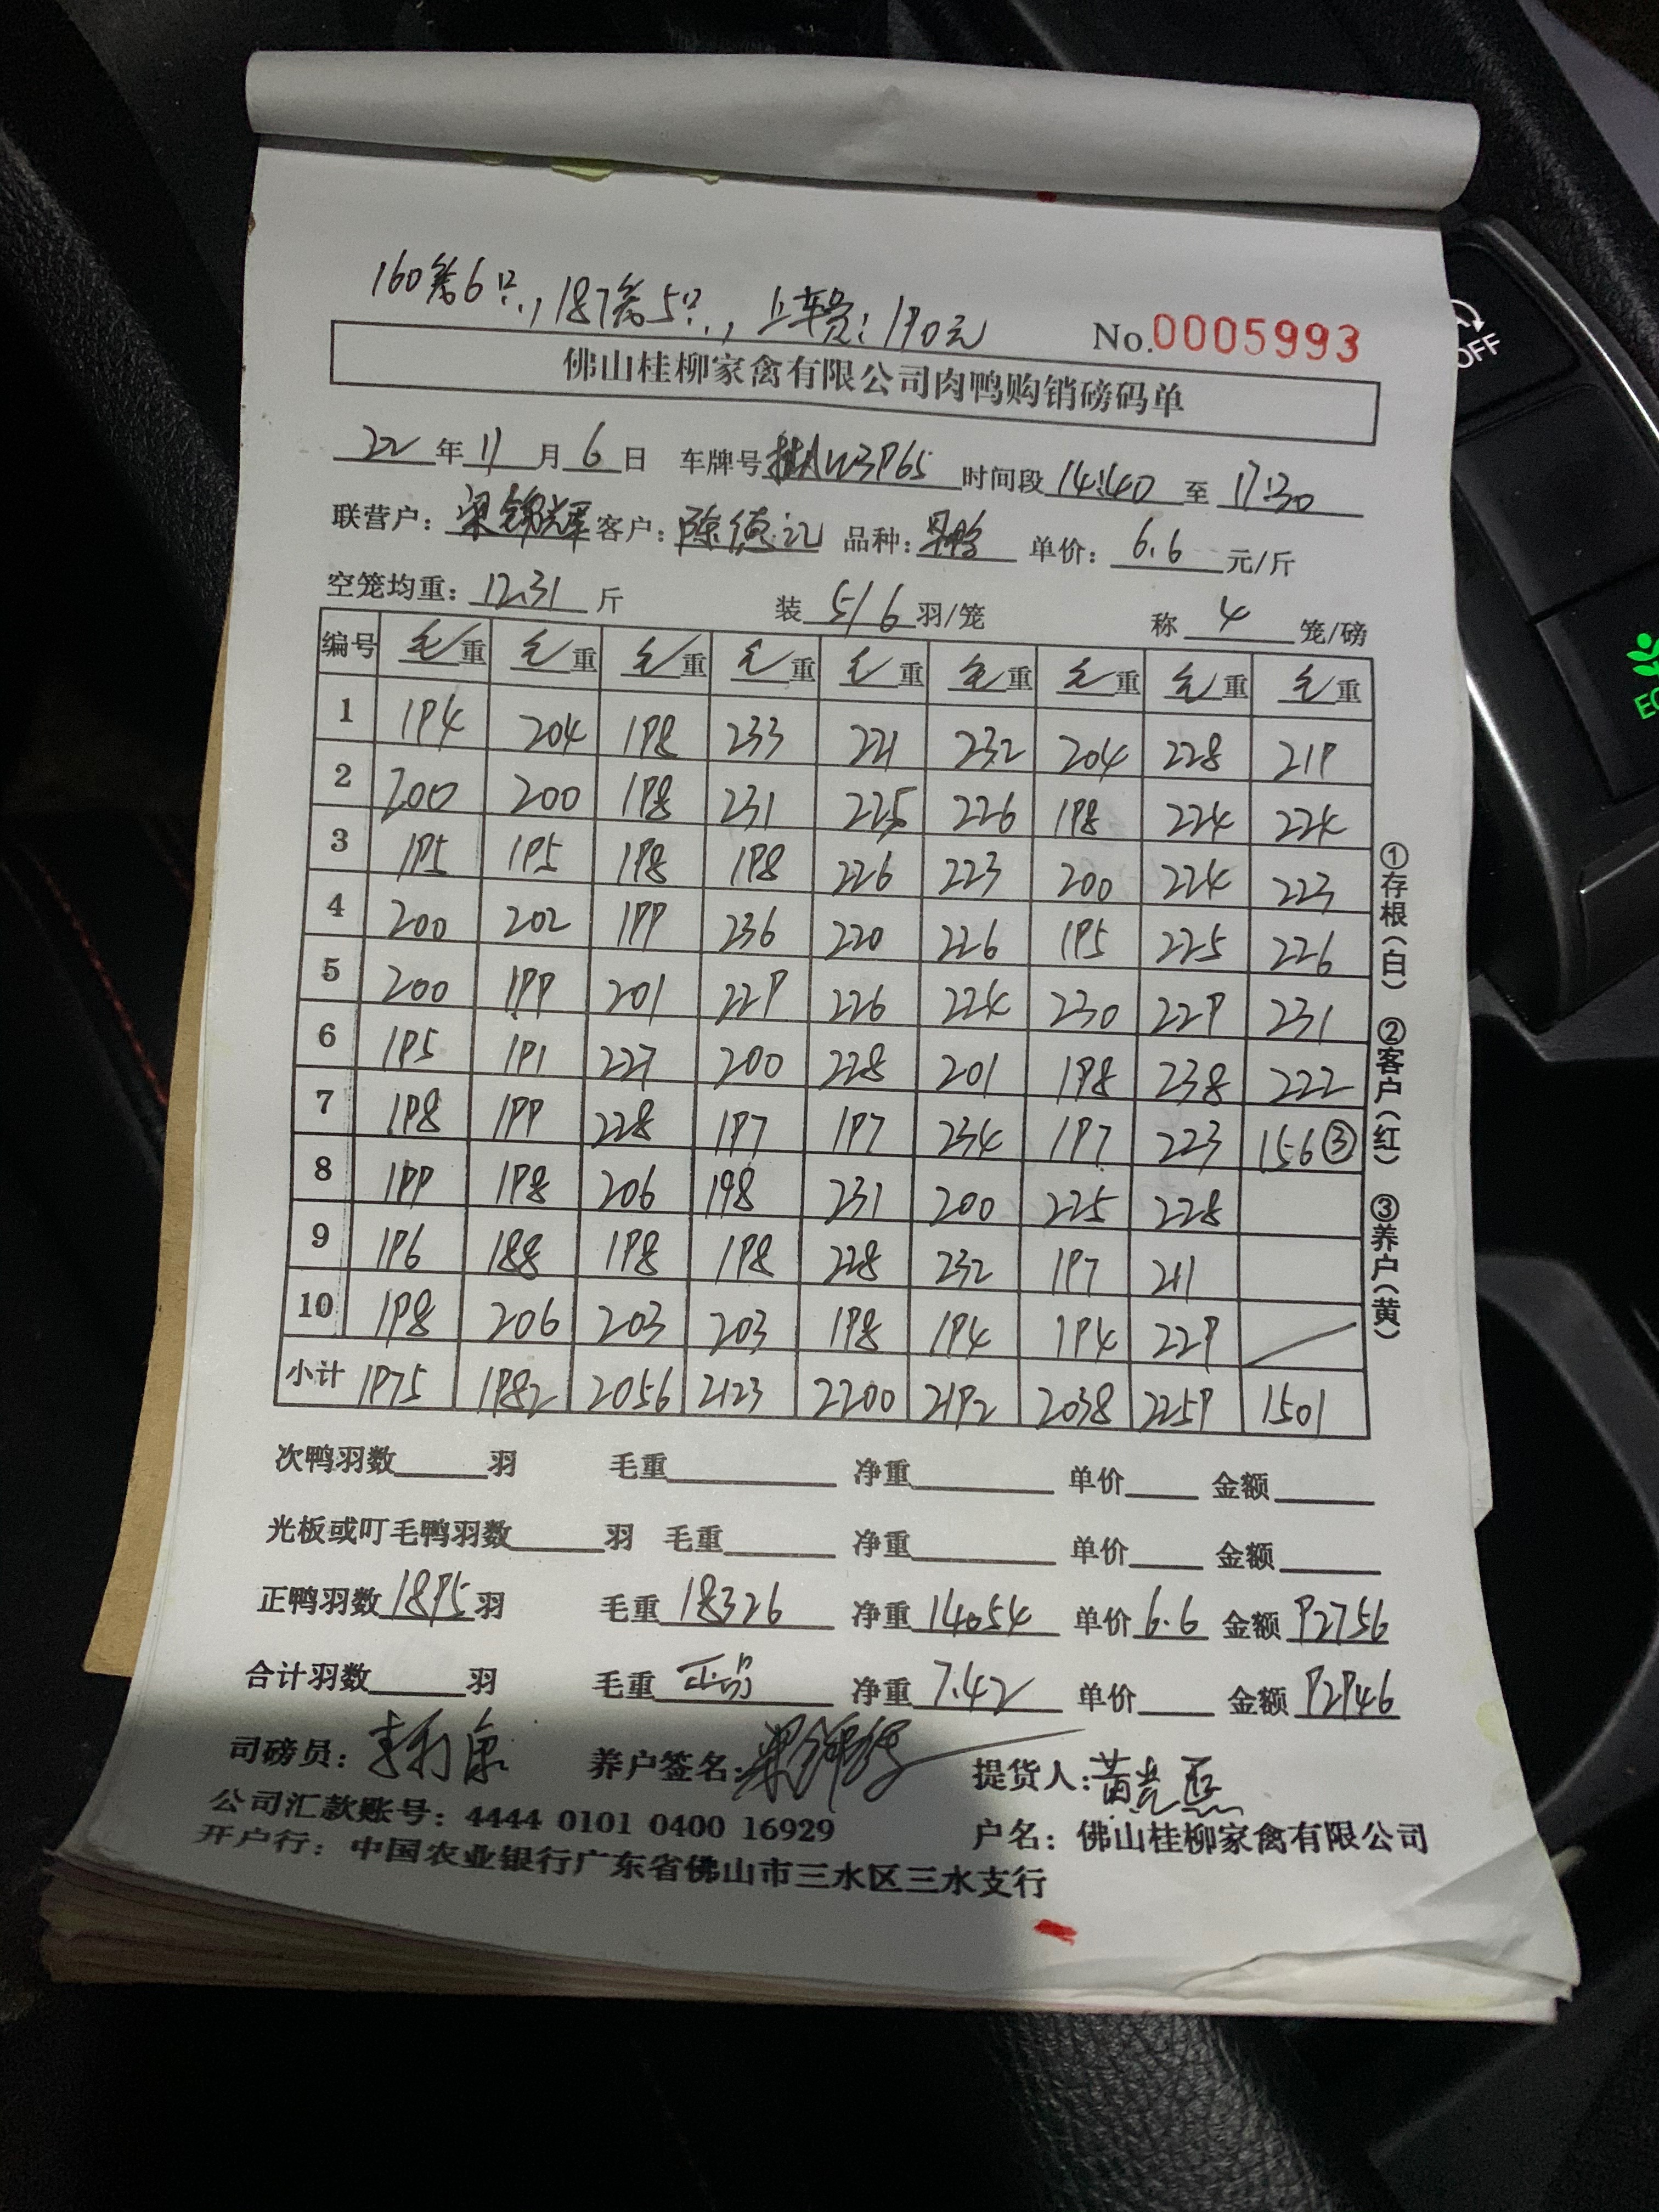 160笼6只,187笼5只,上车费:190元
No.0005993
佛山桂柳家禽有限公司肉鸭购销磅码单
22年11月6日 车牌号 AW3965 时间段14:40至17:30
联营户:梁锦辉 客户:陈德记 品种: 单价:6.6元/斤
空笼均重:12.31斤 装5/6羽/笼 称4笼/磅
编号 毛重 毛重 毛重 毛重 毛重 毛重 毛重 毛重 毛重
1 194 204 198 233 221 232 204 228 219
2 200 200 198 231 225 226 198 224 224
3 195 195 198 198 226 223 200 224 223
4 200 202 199 236 220 226 195 225 226
5 200 199 201 229 226 224 230 229 231
6 195 191 227 200 228 201 198 238 222
7 198 199 228 197 197 234 197 223 156③
8 199 198 206 198 231 200 225 228
9 196 188 198 198 228 232 197 211
10 198 206 203 203 198 194 194 229
小计 1975 1982 2056 2123 2200 2192 2038 2259 1501
①存根(白) ②客户(红) ③养户(黄)
次鸭羽数 羽 毛重 净重 单价 金额
光板或叮毛鸭羽数 羽 毛重 净重 单价 金额
正鸭羽数1895羽 毛重18326 净重14054 单价6.6 金额92756
合计羽数 羽 毛重正品 净重7.42 单价 金额92946
司磅员:李利 养户签名: 提货人:黄光
公司汇款账号:4444 0101 0400 16929 户名:佛山桂柳家禽有限公司
开户行:中国农业银行广东省佛山市三水区三水支行
OFF